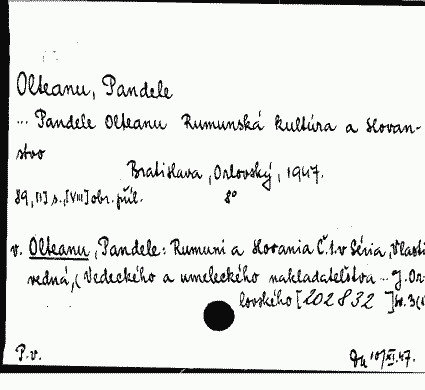 Olteanu, Pandele
... Pandele Olteanu Rumunská kultúra a slovan-
stvo
Bratislava, Orlovský, 1947.
89, [I] s., [VIII] obr. příl. 8°
v. Olteanu, Pandele: Rumuni a Slovania Č.1. v Séria, Vlasti
vedná, (Vedeckého a umeleckého nakladateľstva ... J. Or-
lovského [202832] sv. 3
P.v. 10/XI.47.